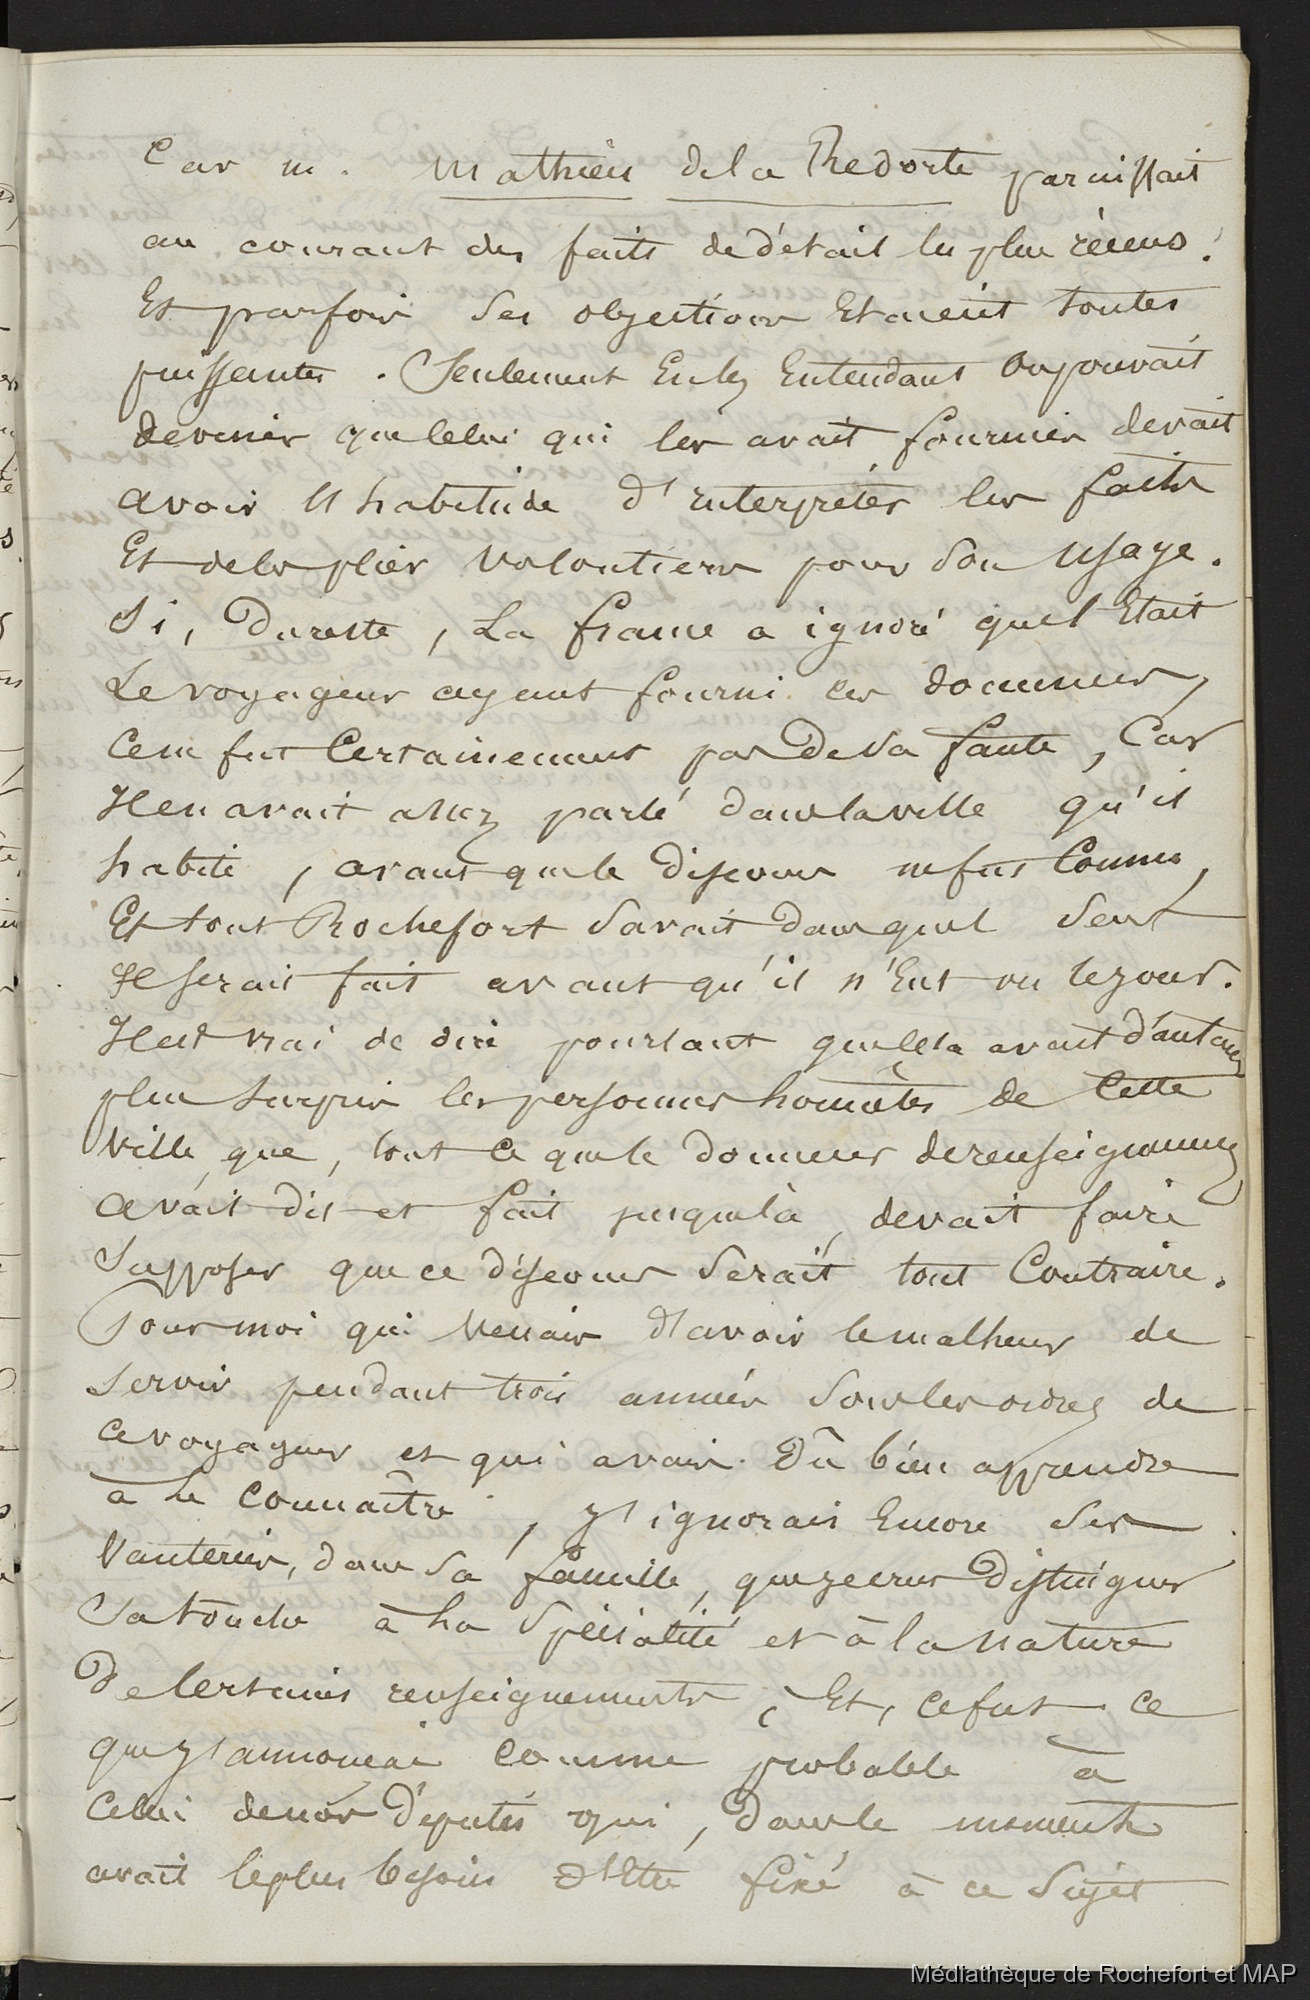 Car m. Mathieu de la Redorte paraissait
au courant des faits de détail les plus récens.
Et parfois ses objections Etaient toutes
puissantes. Seulement En les Entendant On pouvait
deviner que celui qui les avait fournies devait
avoir l'habitude d'interpréter les faits
Et de les plier volontiers pour Son Usage.
Si, Dureste, La france a ignoré quel Etait
Le voyageur ayant fourni ces documens,
Ce ne fut Certainement pas De Sa faute, Car
Il en avait assez parlé dans la ville qu'il
habite, avant que le Discours ne fut Connu,
Et tout Rochefort Savait dans quel Sens
Il serait fait avant qu'il n'Eut vu le jour.
Il est vrai de dire pourtant que cela avait d'autant
plus Surpris les personnes honnêtes de Cette
Ville que, tout ce que le donneur de renseignemens
avait dit et fait jusque là, devait faire
Supposer que ce discours Serait tout Contraire.
Pour moi qui Venais d'avoir le malheur de
Servir pendant trois années Sous les ordres de
ce voyageur et qui avais Dû bien apprendre
à le Connaître, j'ignorais Encore Ses
Vanteries, dans Sa famille, que je crus Distinguer
Sa touche à la Spécialité et à la nature
De Certains renseignements; Et, ce fut ce
que j'annonçai comme probable à
Celui de nos Députés qui, Dans le moment
avait le plus besoin d'Etre fixé à ce Sujet
Médiathèque de Rochefort et MAP